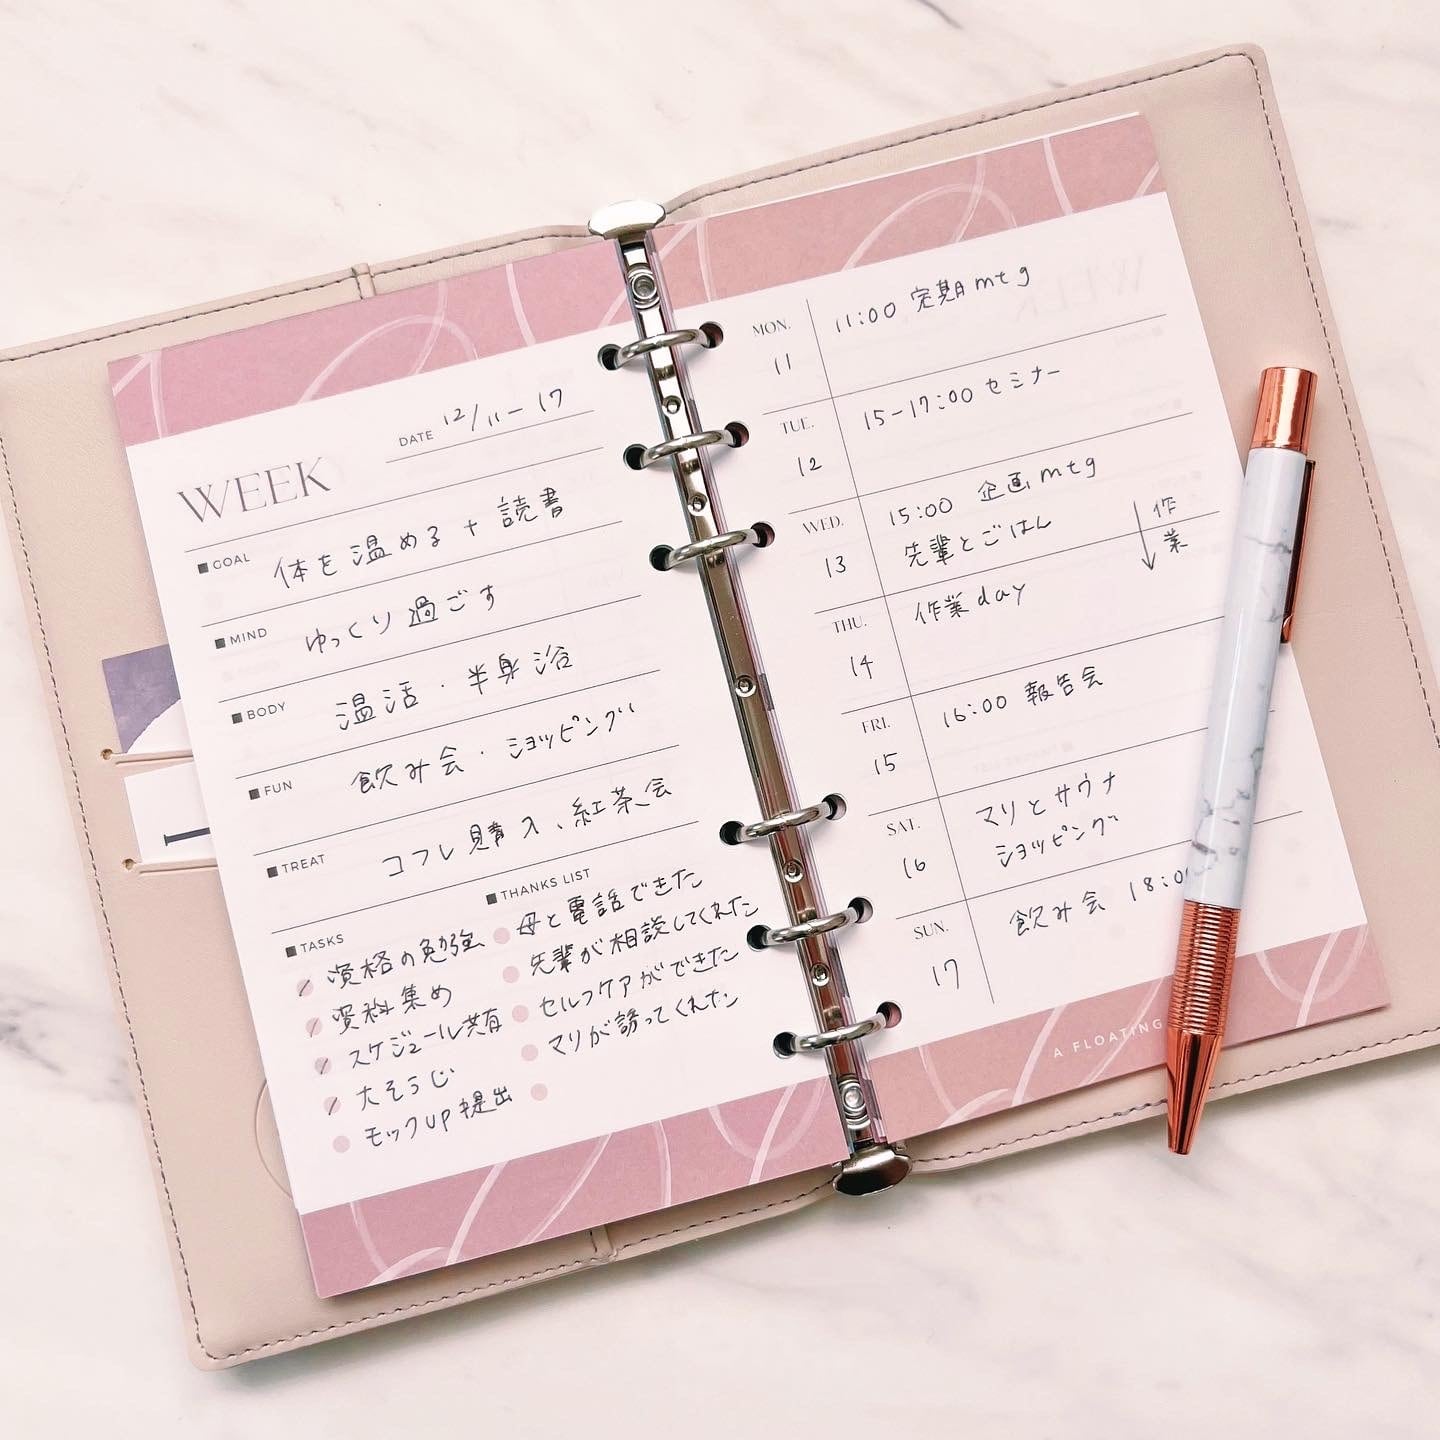 DATE 12/11-17
WEEK
■GOAL 体を温める + 読書
■MIND ゆっくり過ごす
■BODY 温活・半身浴
■FUN 飲み会・ショッピング
■TREAT コフレ購入、紅茶会
■TASKS
資格の勉強
資料集め
スケジュール共有
大そうじ
モックUP提出
■THANKS LIST
母と電話できた
先輩が相談してくれた
セルフケアができた
マリが誘ってくれた
MON. 11 11:00 定期mtg
TUE. 12 15-17:00 セミナー
WED. 13 15:00 企画mtg
先輩とごはん
作業
THU. 14 作業day
FRI. 15 16:00 報告会
SAT. 16 マリとサウナ
ショッピング
SUN. 17 飲み会 18:0
A FLOATING